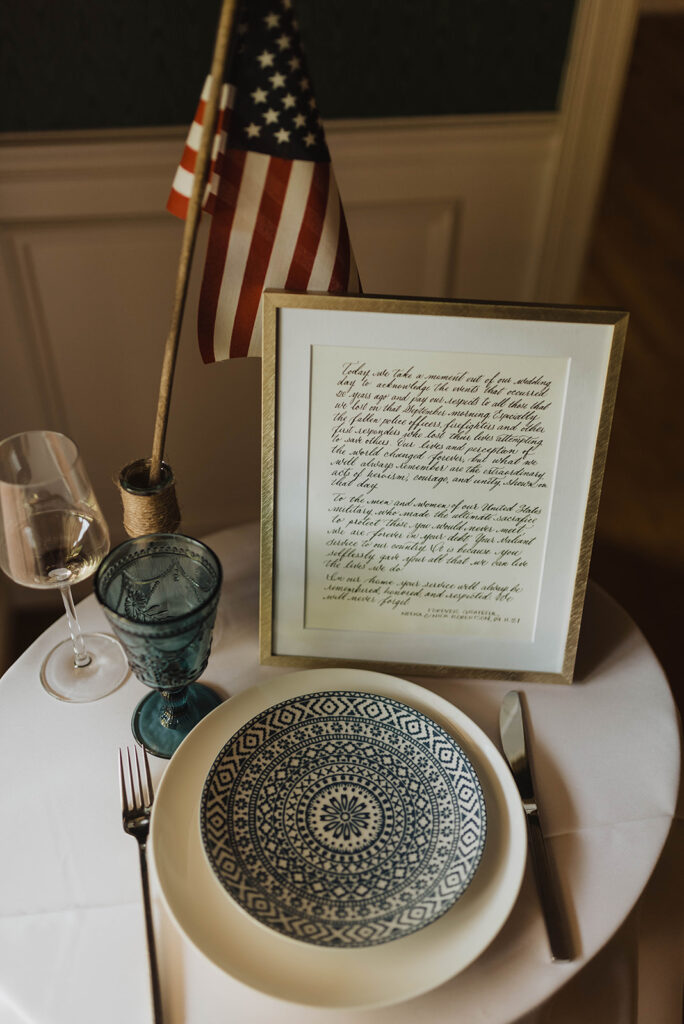 Today we take a moment out of our wedding
day to acknowledge the events that occurred
20 years ago and pay our respects to all those that
we lost on that September morning. Especially
the fallen police officers, firefighters and other
first responders who lost their lives attempting
to save others. Our lives and perception of
the world changed forever, but what we
will always remember are the extraordinary
acts of heroism, courage, and unity shown on
that day.
To the men and women of our United States
military who made the ultimate sacrifice
to protect those you would never meet
we are forever in your debt. Your valiant
service to our country. It is because you
selflessly gave your all that we can live
the lives we do.
In our home your service will always be
remembered, honored, and respected. We
will never forget.
FOREVER GRATEFUL,
& NICK ROBERTSON,